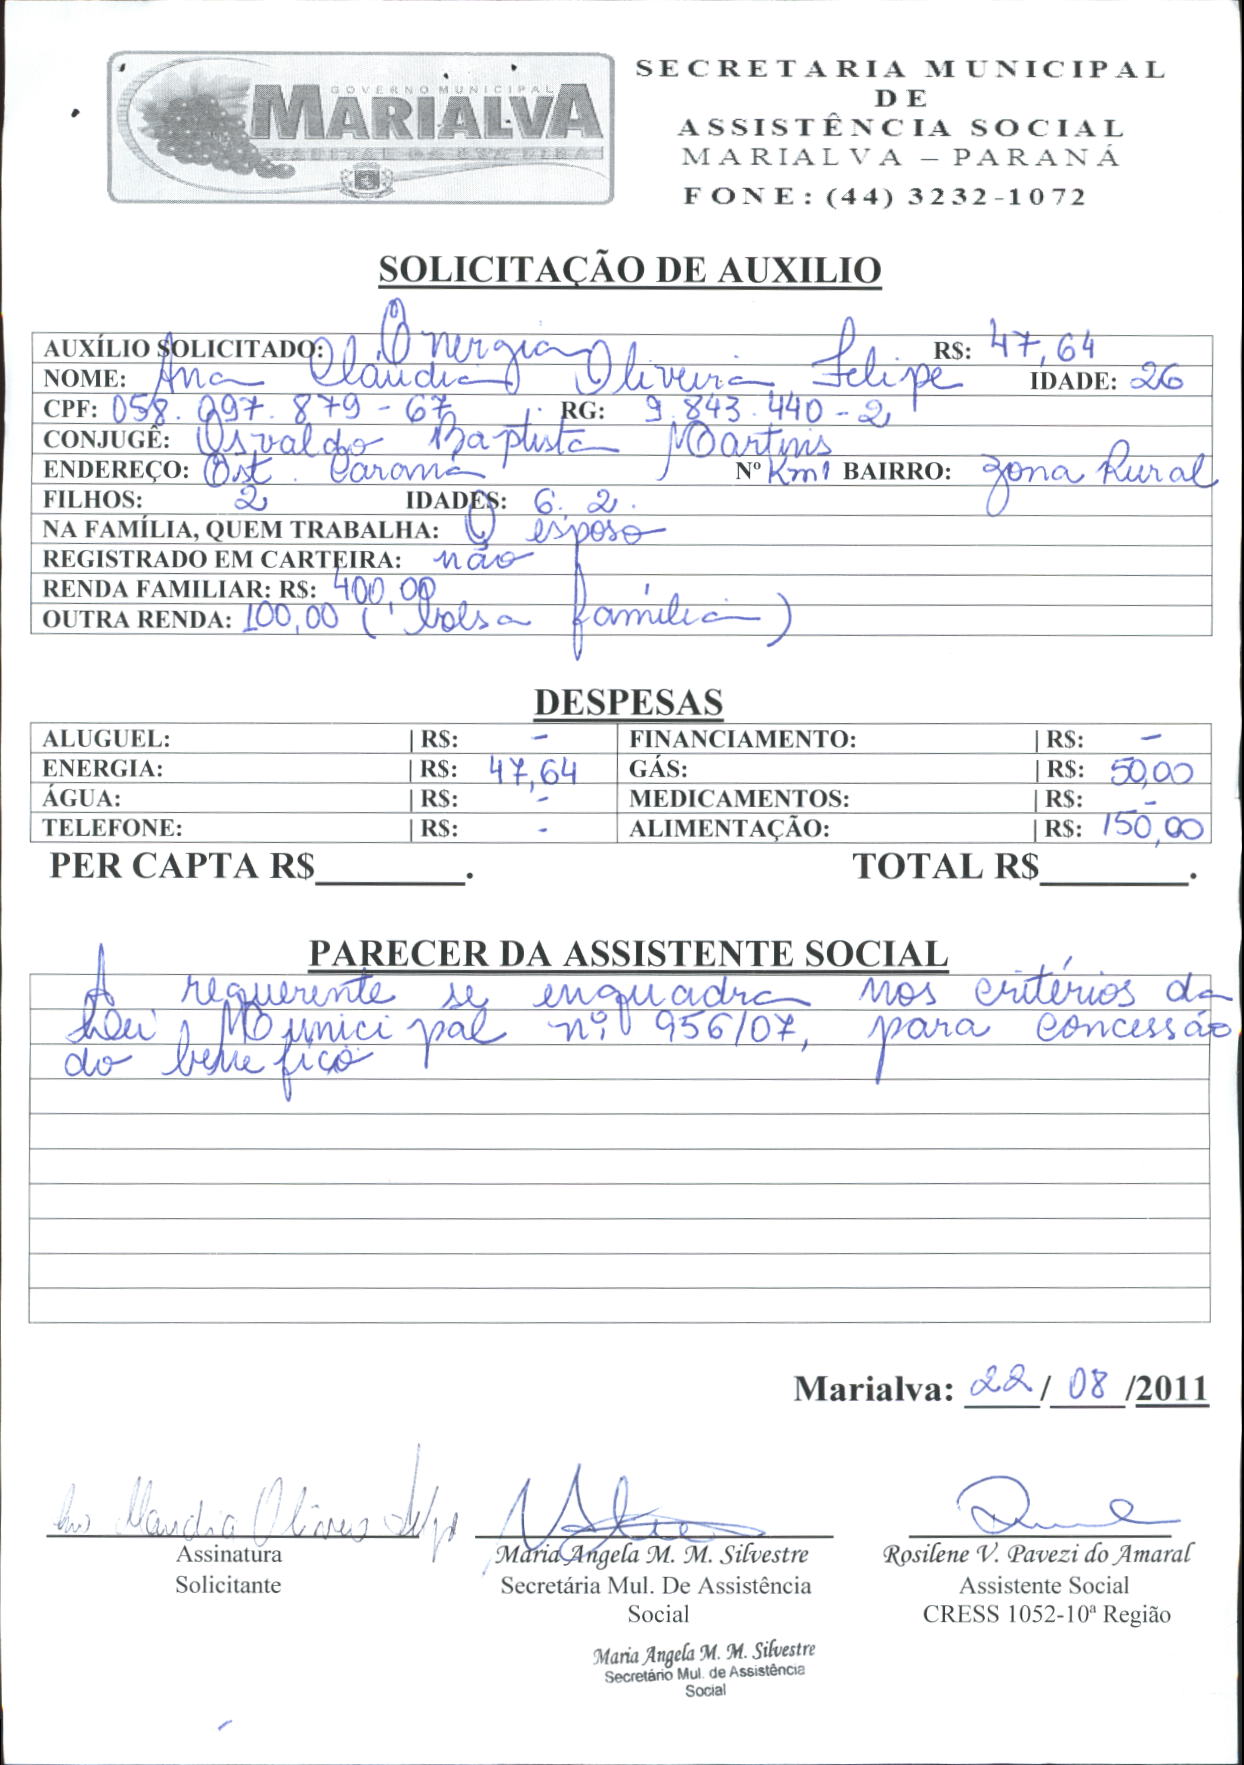 GOVERNO MUNICIPAL
MARIALVA
CAPITAL DA UVA FINA
SECRETARIA MUNICIPAL
DE
ASSISTÊNCIA SOCIAL
MARIALVA – PARANÁ
FONE: (44) 3232-1072
SOLICITAÇÃO DE AUXILIO
AUXÍLIO SOLICITADO: Energia R$: 47,64
NOME: Ana Claúdia Oliveira Felipe IDADE: 26
CPF: 058.097.879-67 RG: 9.843.440-2
CONJUGÊ: Osvaldo Baptista Martins
ENDEREÇO: Est. Caraná Nº Km1 BAIRRO: Zona Rural
FILHOS: 2 IDADES: 6. 2.
NA FAMÍLIA, QUEM TRABALHA: O esposo
REGISTRADO EM CARTEIRA: não
RENDA FAMILIAR: R$: 400,00
OUTRA RENDA: 100,00 (bolsa família)
DESPESAS
ALUGUEL: | R$: - FINANCIAMENTO: | R$: -
ENERGIA: | R$: 47,64 GÁS: | R$: 50,00
ÁGUA: | R$: - MEDICAMENTOS: | R$: -
TELEFONE: | R$: - ALIMENTAÇÃO: | R$: 150,00
PER CAPTA R$________. TOTAL R$________.
PARECER DA ASSISTENTE SOCIAL
A requerente se enquadra nos critérios da
Lei Municipal nº 956/07, para concessão
do benefico
Marialva: 22/ 08 /2011
Assinatura
Solicitante
Maria Angela M. M. Silvestre
Secretária Mul. De Assistência
Social
Rosilene V. Pavezi do Amaral
Assistente Social
CRESS 1052-10ª Região
Maria Angela M. M. Silvestre
Secretário Mul. de Assistência
Social